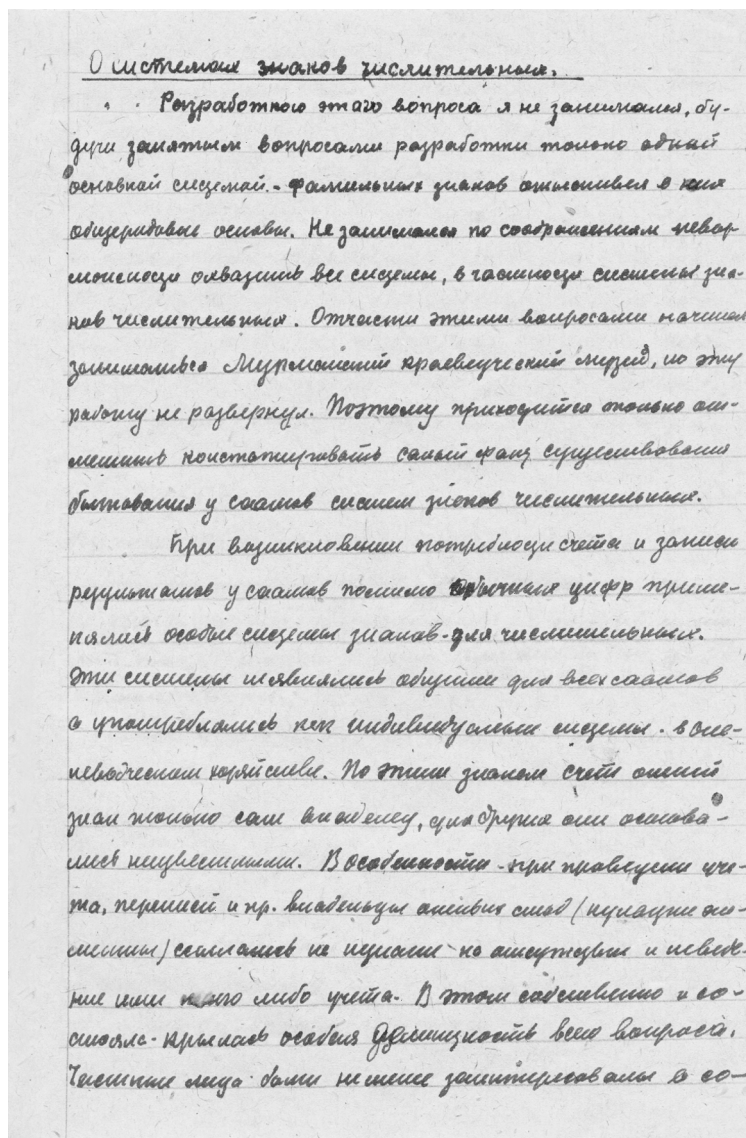 О системах знаков числительных.
Разработкою этого вопроса я не занимался, бу-
дучи занятым вопросами разработки только одной
основной системой - фамильных знаков
общеродовые основы. Не занимался по соображениям невоз-
можности охватить все системы, в частности системы зна-
ков числительных. Отчасти этими вопросами начинал
заниматься Мурманский краеведческий музей, но эту
работу не развернул. Поэтому приходится только от-
метить констатировать самый факт существования
бытования у саамов систем знаков числительных.
При возникновении потребности счета и записи
результатов у саамов помимо обычных цифр приме-
нялись особые системы знаков для числительных.
Эти системы не являлись общими для всех саамов
а употреблялись как индивидуальные системы - в оле-
неводческом хозяйстве. По этим знакам счет оленей
знал только сам владелец, для других они остава-
лись неизвестными. В особенности при проведении уче-
та, переписей и пр. владельцы оленьих стад (кулацкие эле-
менты) ссылались на незнание на отсутствие и неведе-
ние ими какого либо учета. В этом собственно и со-
стояла - крылась особая щекотливость всего вопроса.
Частные лица были не менее заинтересованы в со-